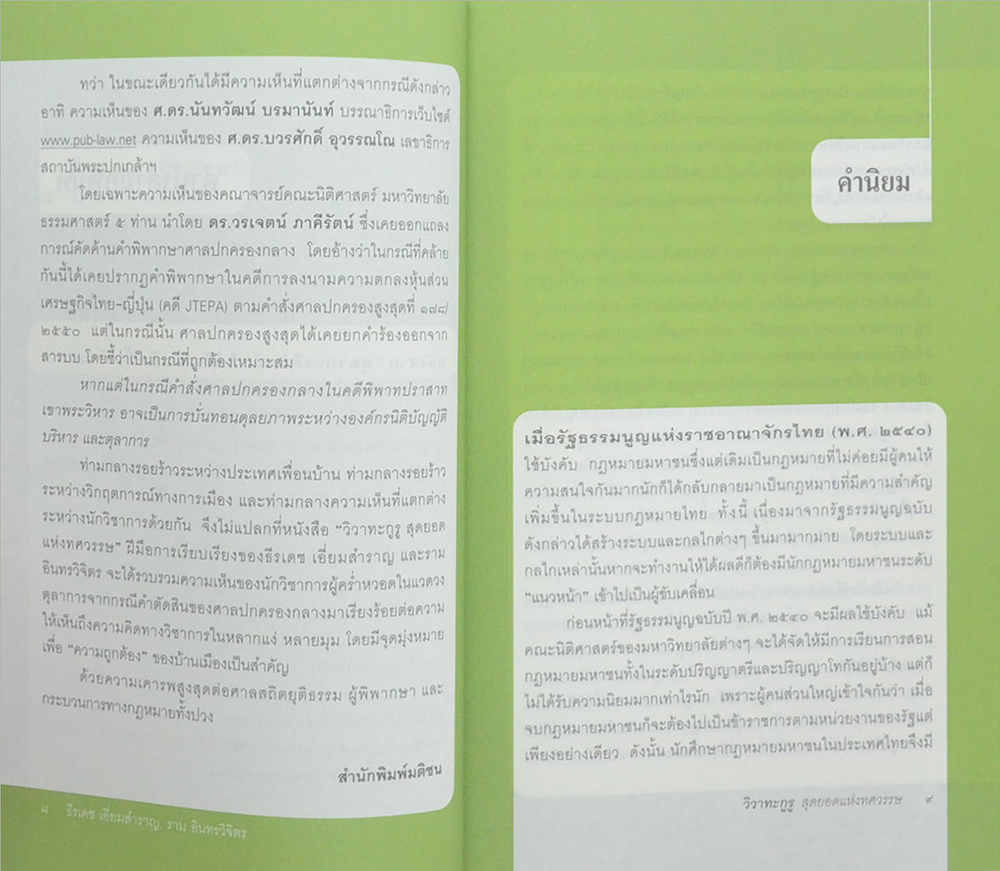 ทว่า ในขณะเดียวกันได้มีความเห็นที่แตกต่างจากกรณีดังกล่าว
อาทิ ความเห็นของ ศ.ดร.นันทวัฒน์ บรมานันท์ บรรณาธิการเว็บไซต์
www.pub-law.net ความเห็นของ ศ.ดร.บวรศักดิ์ อุวรรณโณ เลขาธิการ
สถาบันพระปกเกล้าฯ
โดยเฉพาะความเห็นของคณาจารย์คณะนิติศาสตร์ มหาวิทยาลัย
ธรรมศาสตร์ ๕ ท่าน นำโดย ดร.วรเจตน์ ภาคีรัตน์ ซึ่งเคยออกแถลง
การณ์คัดค้านคำพิพากษาศาลปกครองกลาง โดยอ้างว่าในกรณีที่คล้าย
กันนี้ได้เคยปรากฏคำพิพากษาในคดีการลงนามความตกลงหุ้นส่วน
เศรษฐกิจไทย-ญี่ปุ่น (คดี JTEPA) ตามคำสั่งศาลปกครองสูงสุดที่ ๑๗๘/
๒๕๕๐ แต่ในกรณีนั้น ศาลปกครองสูงสุดได้เคยยกคำร้องออกจาก
สารบบ โดยชี้ว่าเป็นกรณีที่ถูกต้องเหมาะสม
หากแต่ในกรณีคำสั่งศาลปกครองกลางในคดีพิพาทปราสาท
เขาพระวิหาร อาจเป็นการบั่นทอนดุลยภาพระหว่างองค์กรนิติบัญญัติ
บริหาร และตุลาการ
ท่ามกลางรอยร้าวระหว่างประเทศเพื่อนบ้าน ท่ามกลางรอยร้าว
ระหว่างวิกฤตการณ์ทางการเมือง และท่ามกลางความเห็นที่แตกต่าง
ระหว่างนักวิชาการด้วยกัน จึงไม่แปลกที่หนังสือ “วิวาทะกูรู สุดยอด
แห่งทศวรรษ” ฝีมือการเรียบเรียงของธีรเดช เอี่ยมสำราญ และราม
อินทรวิจิตร จะได้รวบรวมความเห็นของนักวิชาการผู้คร่ำหวอดในแวดวง
ตุลาการจากกรณีคำตัดสินของศาลปกครองกลางมาเรียงร้อยต่อความ
ให้เห็นถึงความคิดทางวิชาการในหลากแง่ หลายมุม โดยมีจุดมุ่งหมาย
เพื่อ “ความถูกต้อง” ของบ้านเมืองเป็นสำคัญ
ด้วยความเคารพสูงสุดต่อศาลสถิตยุติธรรม ผู้พิพากษา และ
กระบวนการทางกฎหมายทั้งปวง
สำนักพิมพ์มติชน
๘ ธีรเดช เอี่ยมสำราญ, ราม อินทรวิจิตร
คำนิยม
เมื่อรัฐธรรมนูญแห่งราชอาณาจักรไทย (พ.ศ. ๒๕๔๐)
ใช้บังคับ กฎหมายมหาชนซึ่งแต่เดิมเป็นกฎหมายที่ไม่ค่อยมีผู้คนให้
ความสนใจกันมากนักก็ได้กลับกลายมาเป็นกฎหมายที่มีความสำคัญ
เพิ่มขึ้นในระบบกฎหมายไทย ทั้งนี้ เนื่องมาจากรัฐธรรมนูญฉบับ
ดังกล่าวได้สร้างระบบและกลไกต่างๆ ขึ้นมามากมาย โดยระบบและ
กลไกเหล่านั้นหากจะทำงานให้ได้ผลดีก็ต้องมีนักกฎหมายมหาชนระดับ
“แนวหน้า” เข้าไปเป็นผู้ขับเคลื่อน
ก่อนหน้าที่รัฐธรรมนูญฉบับปี พ.ศ. ๒๕๔๐ จะมีผลใช้บังคับ แม้
คณะนิติศาสตร์ของมหาวิทยาลัยต่างๆ จะได้จัดให้มีการเรียนการสอน
กฎหมายมหาชนทั้งในระดับปริญญาตรีและปริญญาโทกันอยู่บ้าง แต่ก็
ไม่ได้รับความนิยมมากเท่าไรนัก เพราะผู้คนส่วนใหญ่เข้าใจกันว่า เมื่อ
จบกฎหมายมหาชนก็จะต้องไปเป็นข้าราชการตามหน่วยงานของรัฐแต่
เพียงอย่างเดียว ดังนั้น นักศึกษากฎหมายมหาชนในประเทศไทยจึงมี
วิวาทะกูรู สุดยอดแห่งทศวรรษ ๙